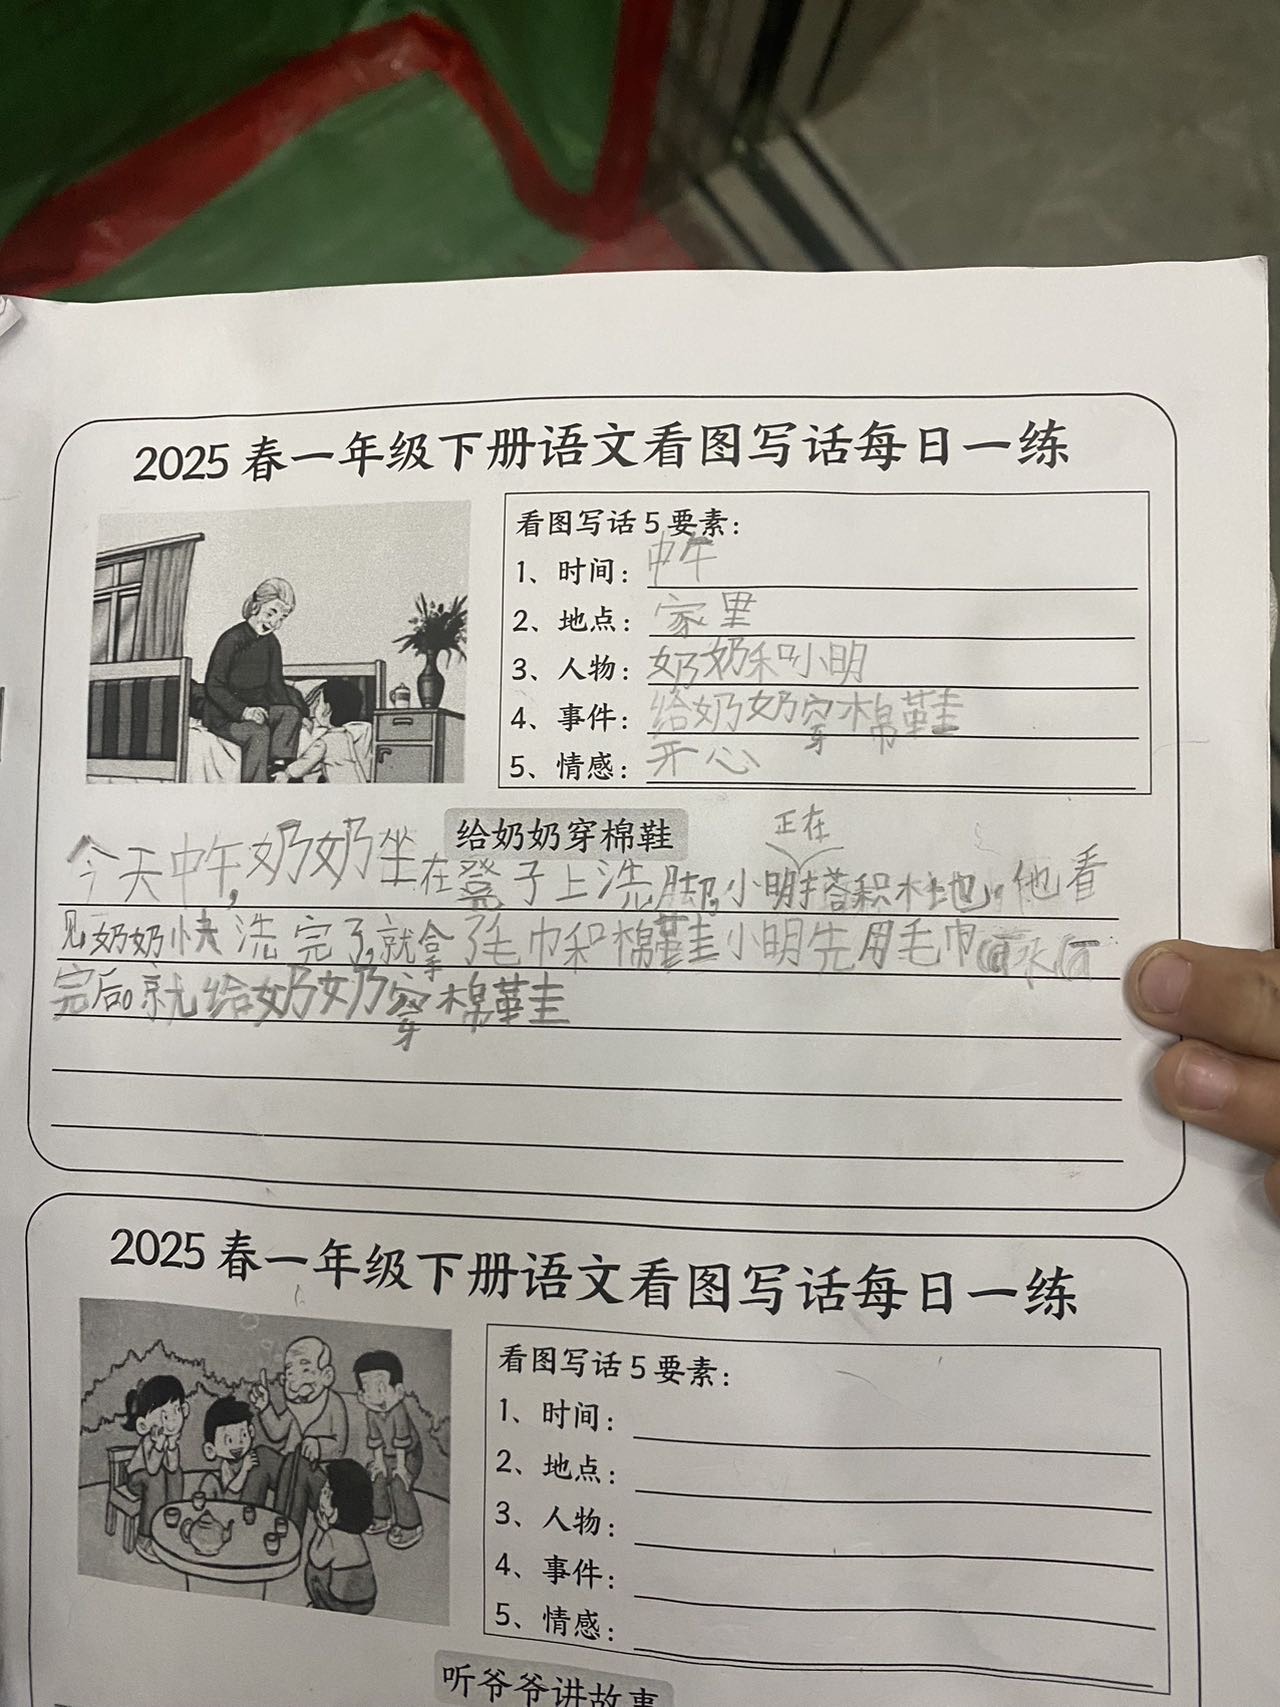 2025春一年级下册语文看图写话每日一练
看图写话5要素：
1、时间：中午
2、地点：家里
3、人物：奶奶和小明
4、事件：给奶奶穿棉鞋
5、情感：开心
给奶奶穿棉鞋
正在
今天中午,奶奶坐在凳子上洗脚,小明搭积木地。他看
见奶奶快洗完了,就拿了毛巾和棉鞋小明先用毛巾
完后。就给奶奶穿棉鞋
2025春一年级下册语文看图写话每日一练
看图写话5要素：
1、时间：
2、地点：
3、人物：
4、事件：
5、情感：
听爷爷讲故事